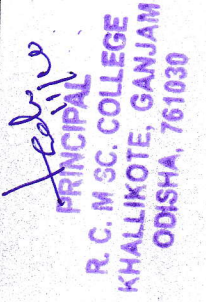 PRINCIPAL
R. C. M SC. COLLEGE
KHALLIKOTE, GANJAM
ODISHA, 761030